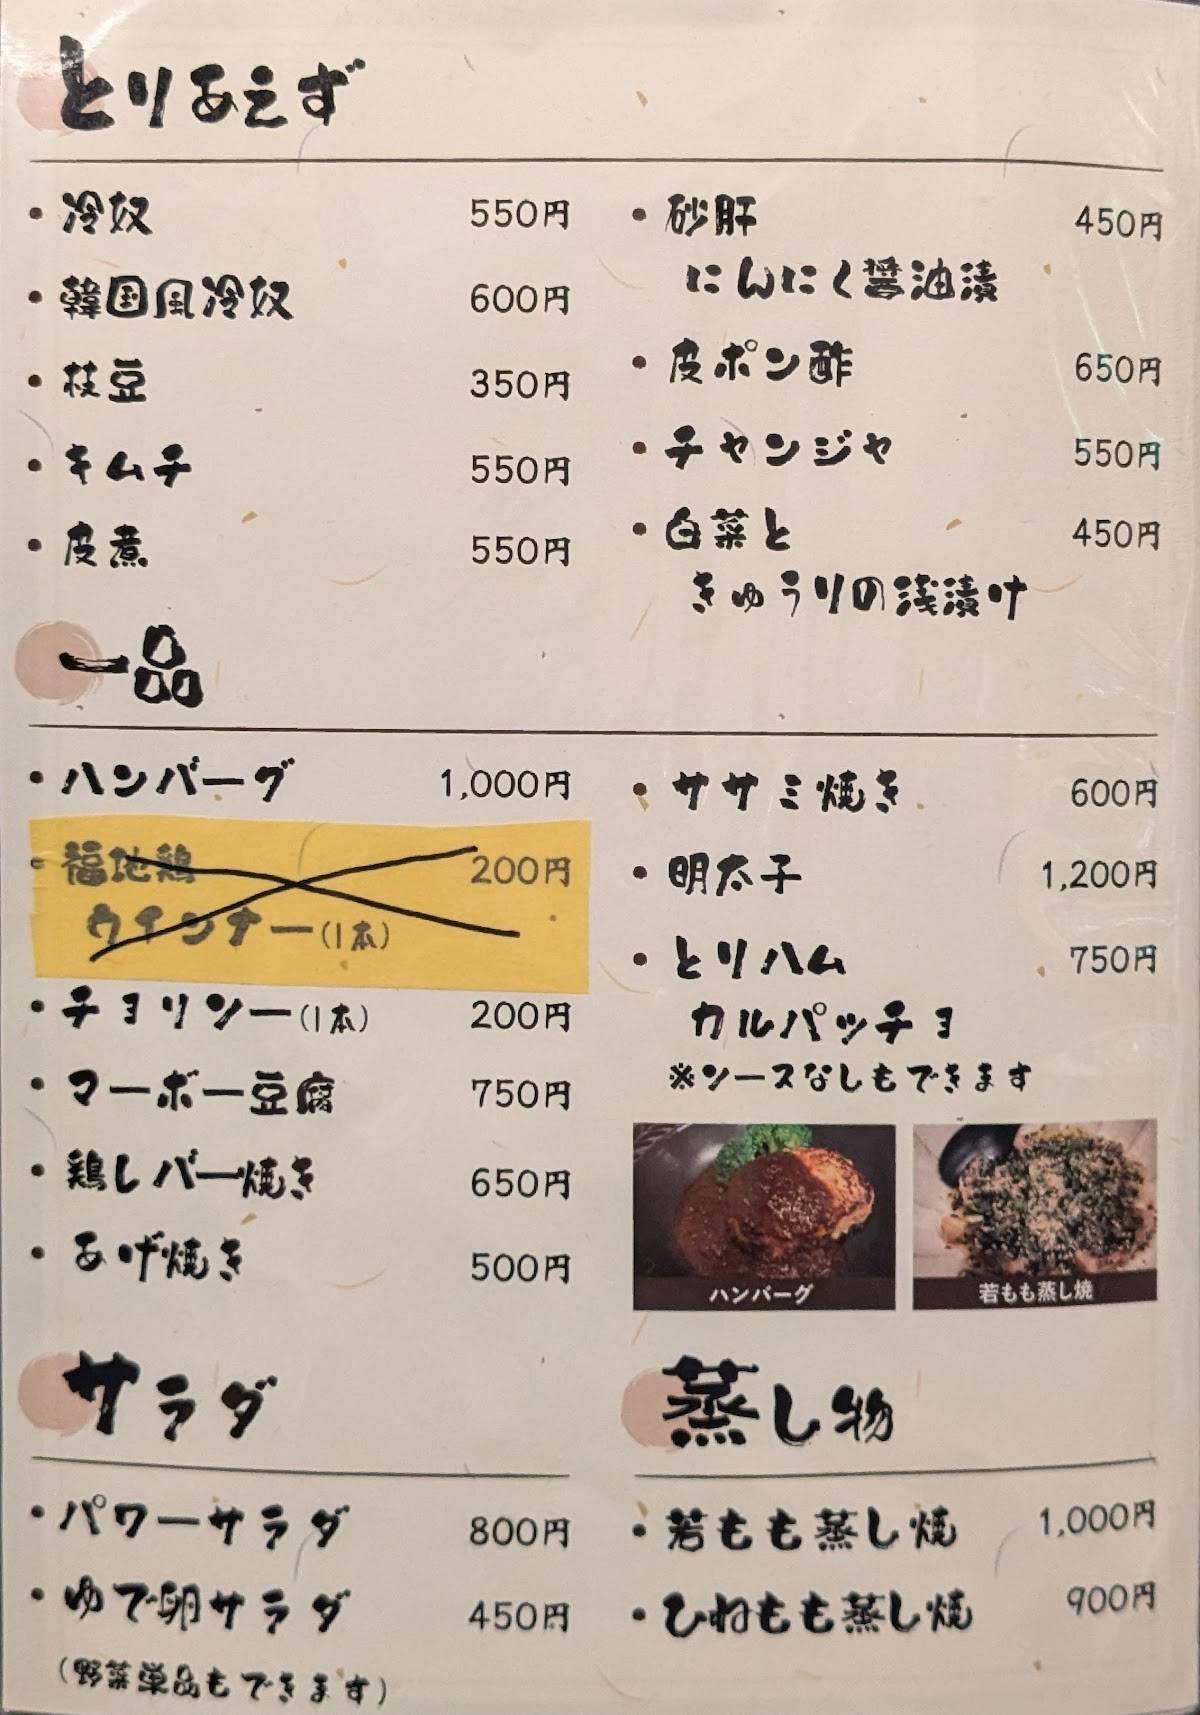 とりあえず
・冷奴 550円
・韓国風冷奴 600円
・枝豆 350円
・キムチ 550円
・皮煮 550円
・砂肝 450円
にんにく醤油漬
・皮ポン酢 650円
・チャンジャ 550円
・白菜と 450円
きゅうりの浅漬け
一品
・ハンバーグ 1,000円
・福地鶏 200円
ウインナー(1本)
・チョリソー(1本) 200円
・マーボー豆腐 750円
・鶏レバー焼き 650円
・あげ焼き 500円
・ササミ焼き 600円
・明太子 1,200円
・とりハム 750円
カルパッチョ
※ソースなしもできます
ハンバーグ
若もも蒸し焼
サラダ
・パワーサラダ 800円
・ゆで卵サラダ 450円
(野菜単品もできます)
蒸し物
・若もも蒸し焼 1,000円
・ひねもも蒸し焼 900円